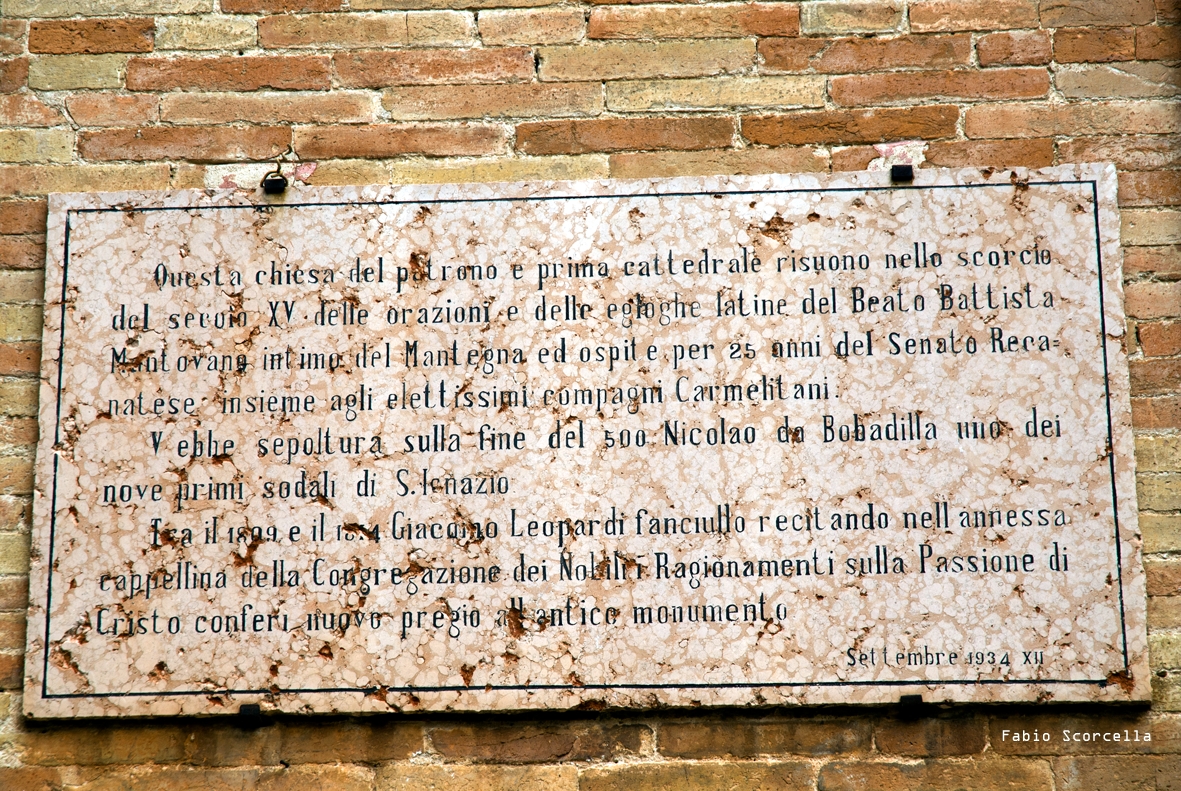 Questa chiesa del patrono e prima cattedrale risuono nello scorcio
del secolo XV delle orazioni e delle egloghe latine del Beato Battista
Mantovano intimo del Mantegna ed ospite per 25 anni del Senato Reca=
natese insieme agli elettissimi compagni Carmelitani.
V ebbe sepoltura sulla fine del 500 Nicolao da Bobadilla uno dei
nove primi sodali di S. Ignazio
Fra il 1809 e il Giacomo Leopardi fanciullo recitando nell annessa
cappellina della Congregazione dei Nobili i Ragionamenti sulla Passione di
Cristo conferi nuovo pregio all antico monumento
Settembre 1934 XII
Fabio Scorcella